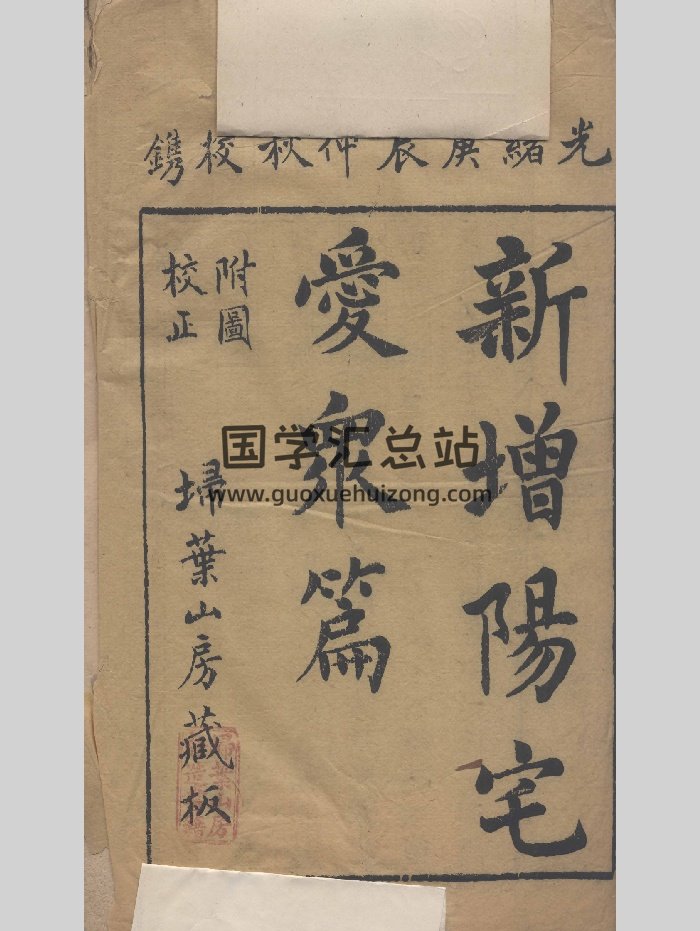 光緒庚辰仲秋校鐫
新增陽宅
愛衆篇
附圖
校正
埽葉山房藏板
国学汇总站
www.guoxuehuizong.com